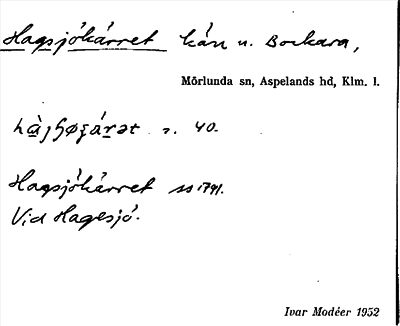 Hagsjökärret kärr u. Bockara,
Mörlunda sn, Aspelands hd, Klm. l.
40.
Hagsjökärret ss 1791.
Vid Hagesjö.
Ivar Modéer 1952